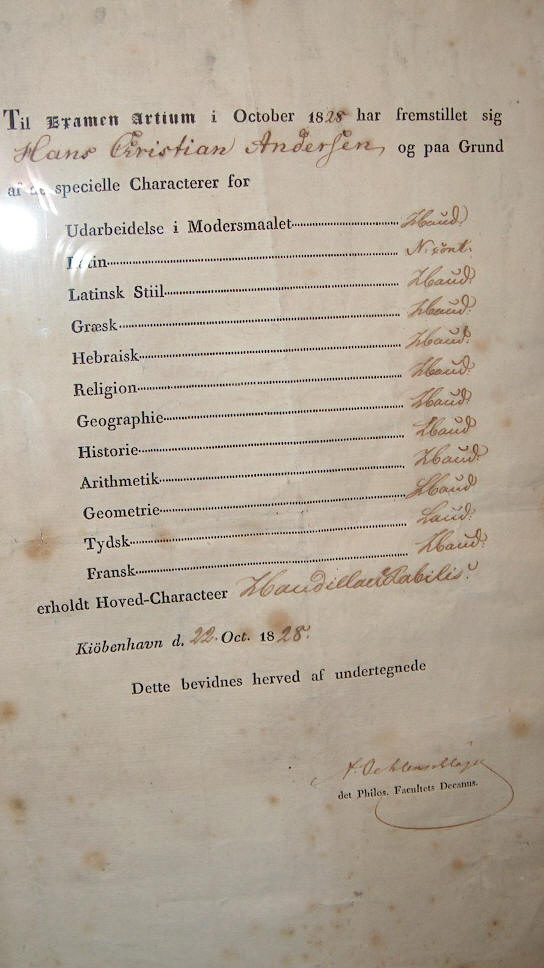 Til Examen Artium i October 1828 har fremstillet sig
Hans Christian Andersen, og paa Grund
af de specielle Characterer for
Udarbeidelse i Modersmaalet Haud:
Latin N: cont:
Latinsk Stiil Haud:
Græsk Haud:
Hebraisk Haud:
Religion Haud:
Geographie Haud:
Historie Haud
Arithmetik Haud:
Geometrie Haud
Tydsk Laud:
Fransk Haud:
erholdt Hoved-Characteer Haudillaudabilis.
Kiöbenhavn d. 22. Oct. 1828.
Dette bevidnes herved af undertegnede
A. Oehlenschläger
det Philos. Facultets Decanus.